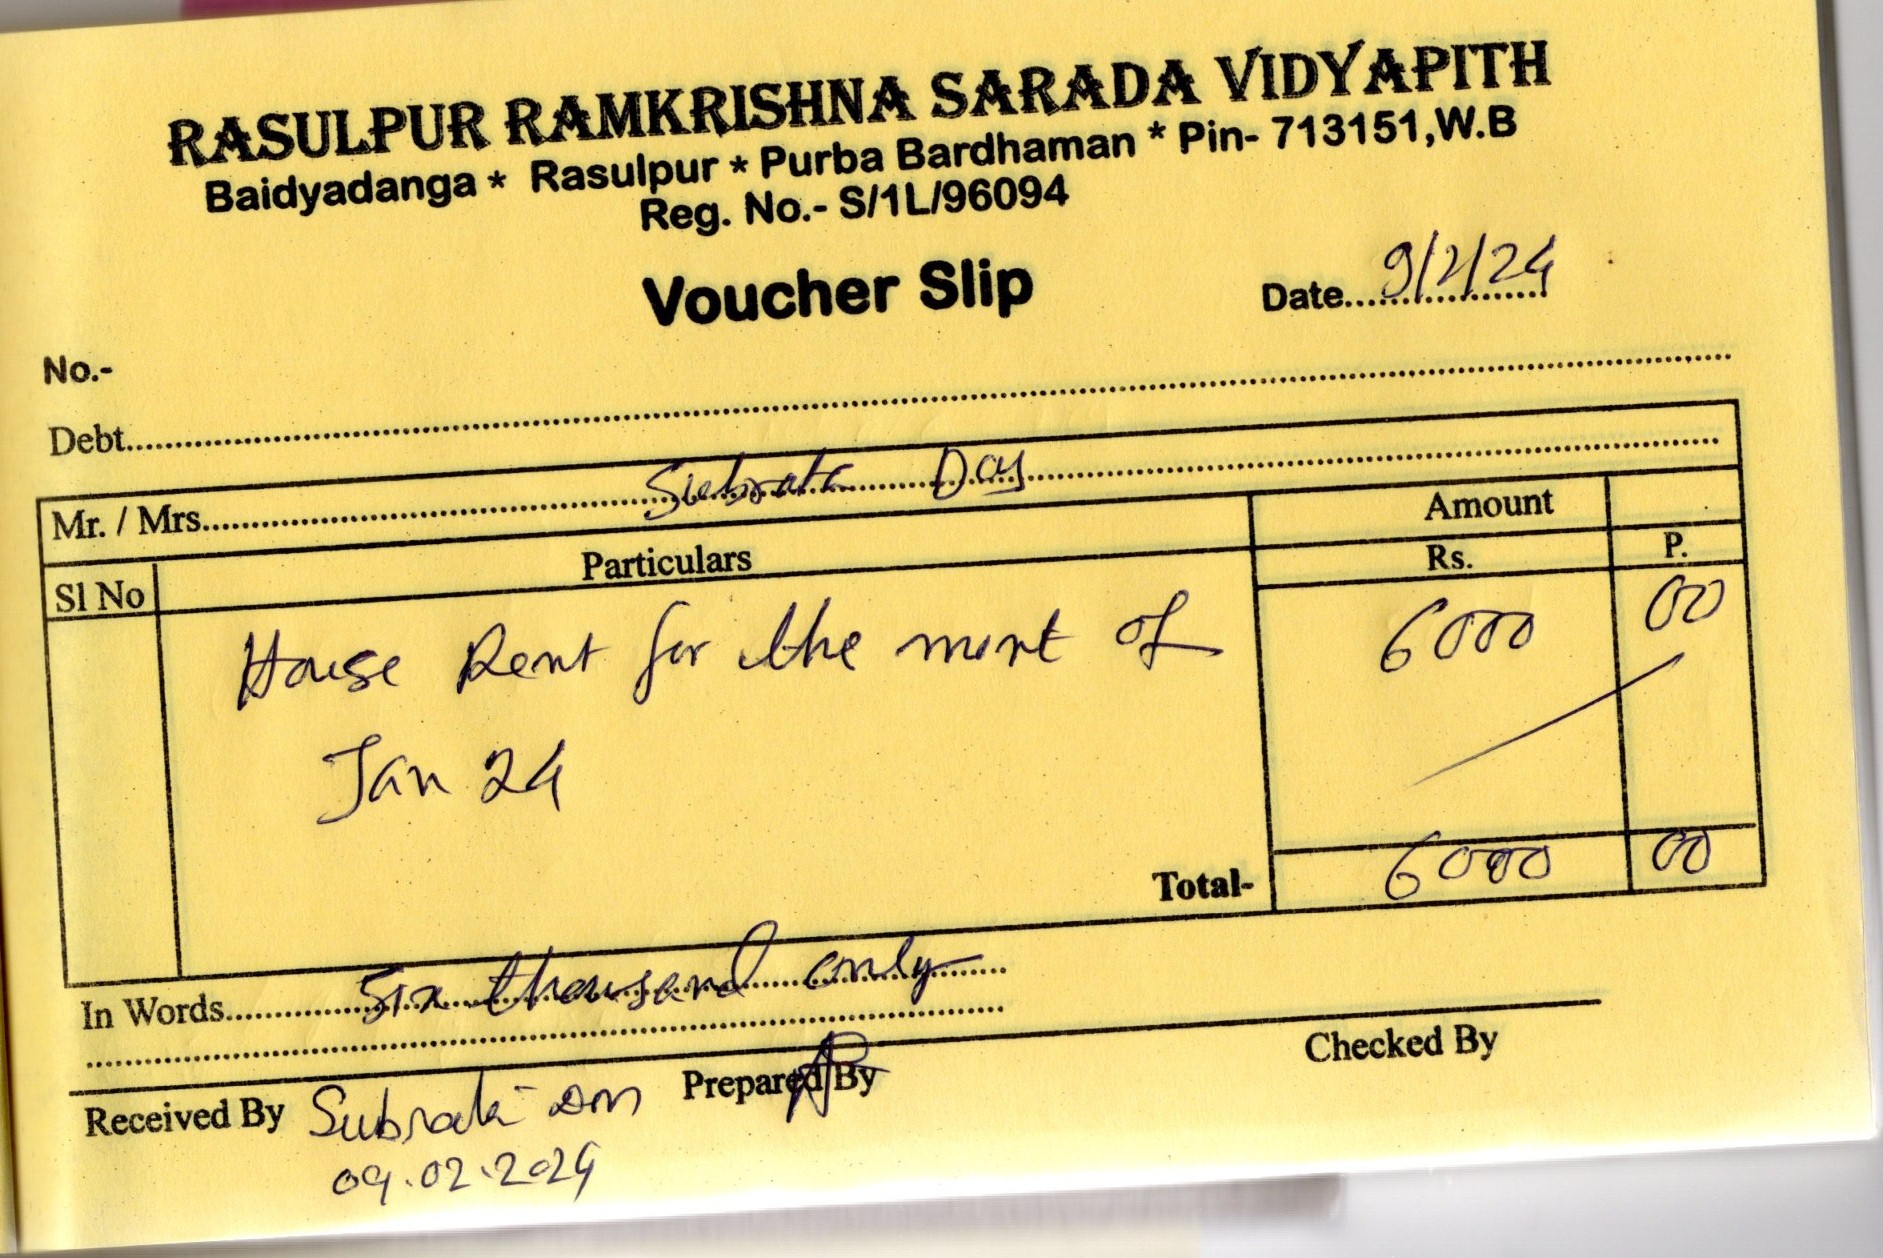 RASULPUR RAMKRISHNA SARADA VIDYAPITH
Baidyadanga * Rasulpur * Purba Bardhaman * Pin- 713151,W.B
Reg. No.- S/1L/96094
Voucher Slip
Date....9/2/24
No.-
Debt
Mr. / Mrs. Subrata Day
Sl No Particulars Amount
Rs. P.
House Rent for the mont of 6000 00
Jan 24
Total- 6000 00
In Words Six thousand only
Received By Subrata Prepared By Checked By
09.02.2024